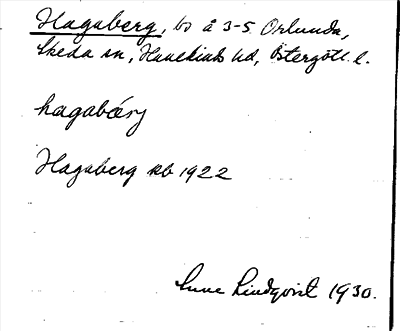 Hagaberg, bo å 3-5 Orlunda,
Skeda sn, Hanekinds hd, Östergötl. l.
hagabærj
Hagaberg kb 1922
Sune Lindqvist 1930.